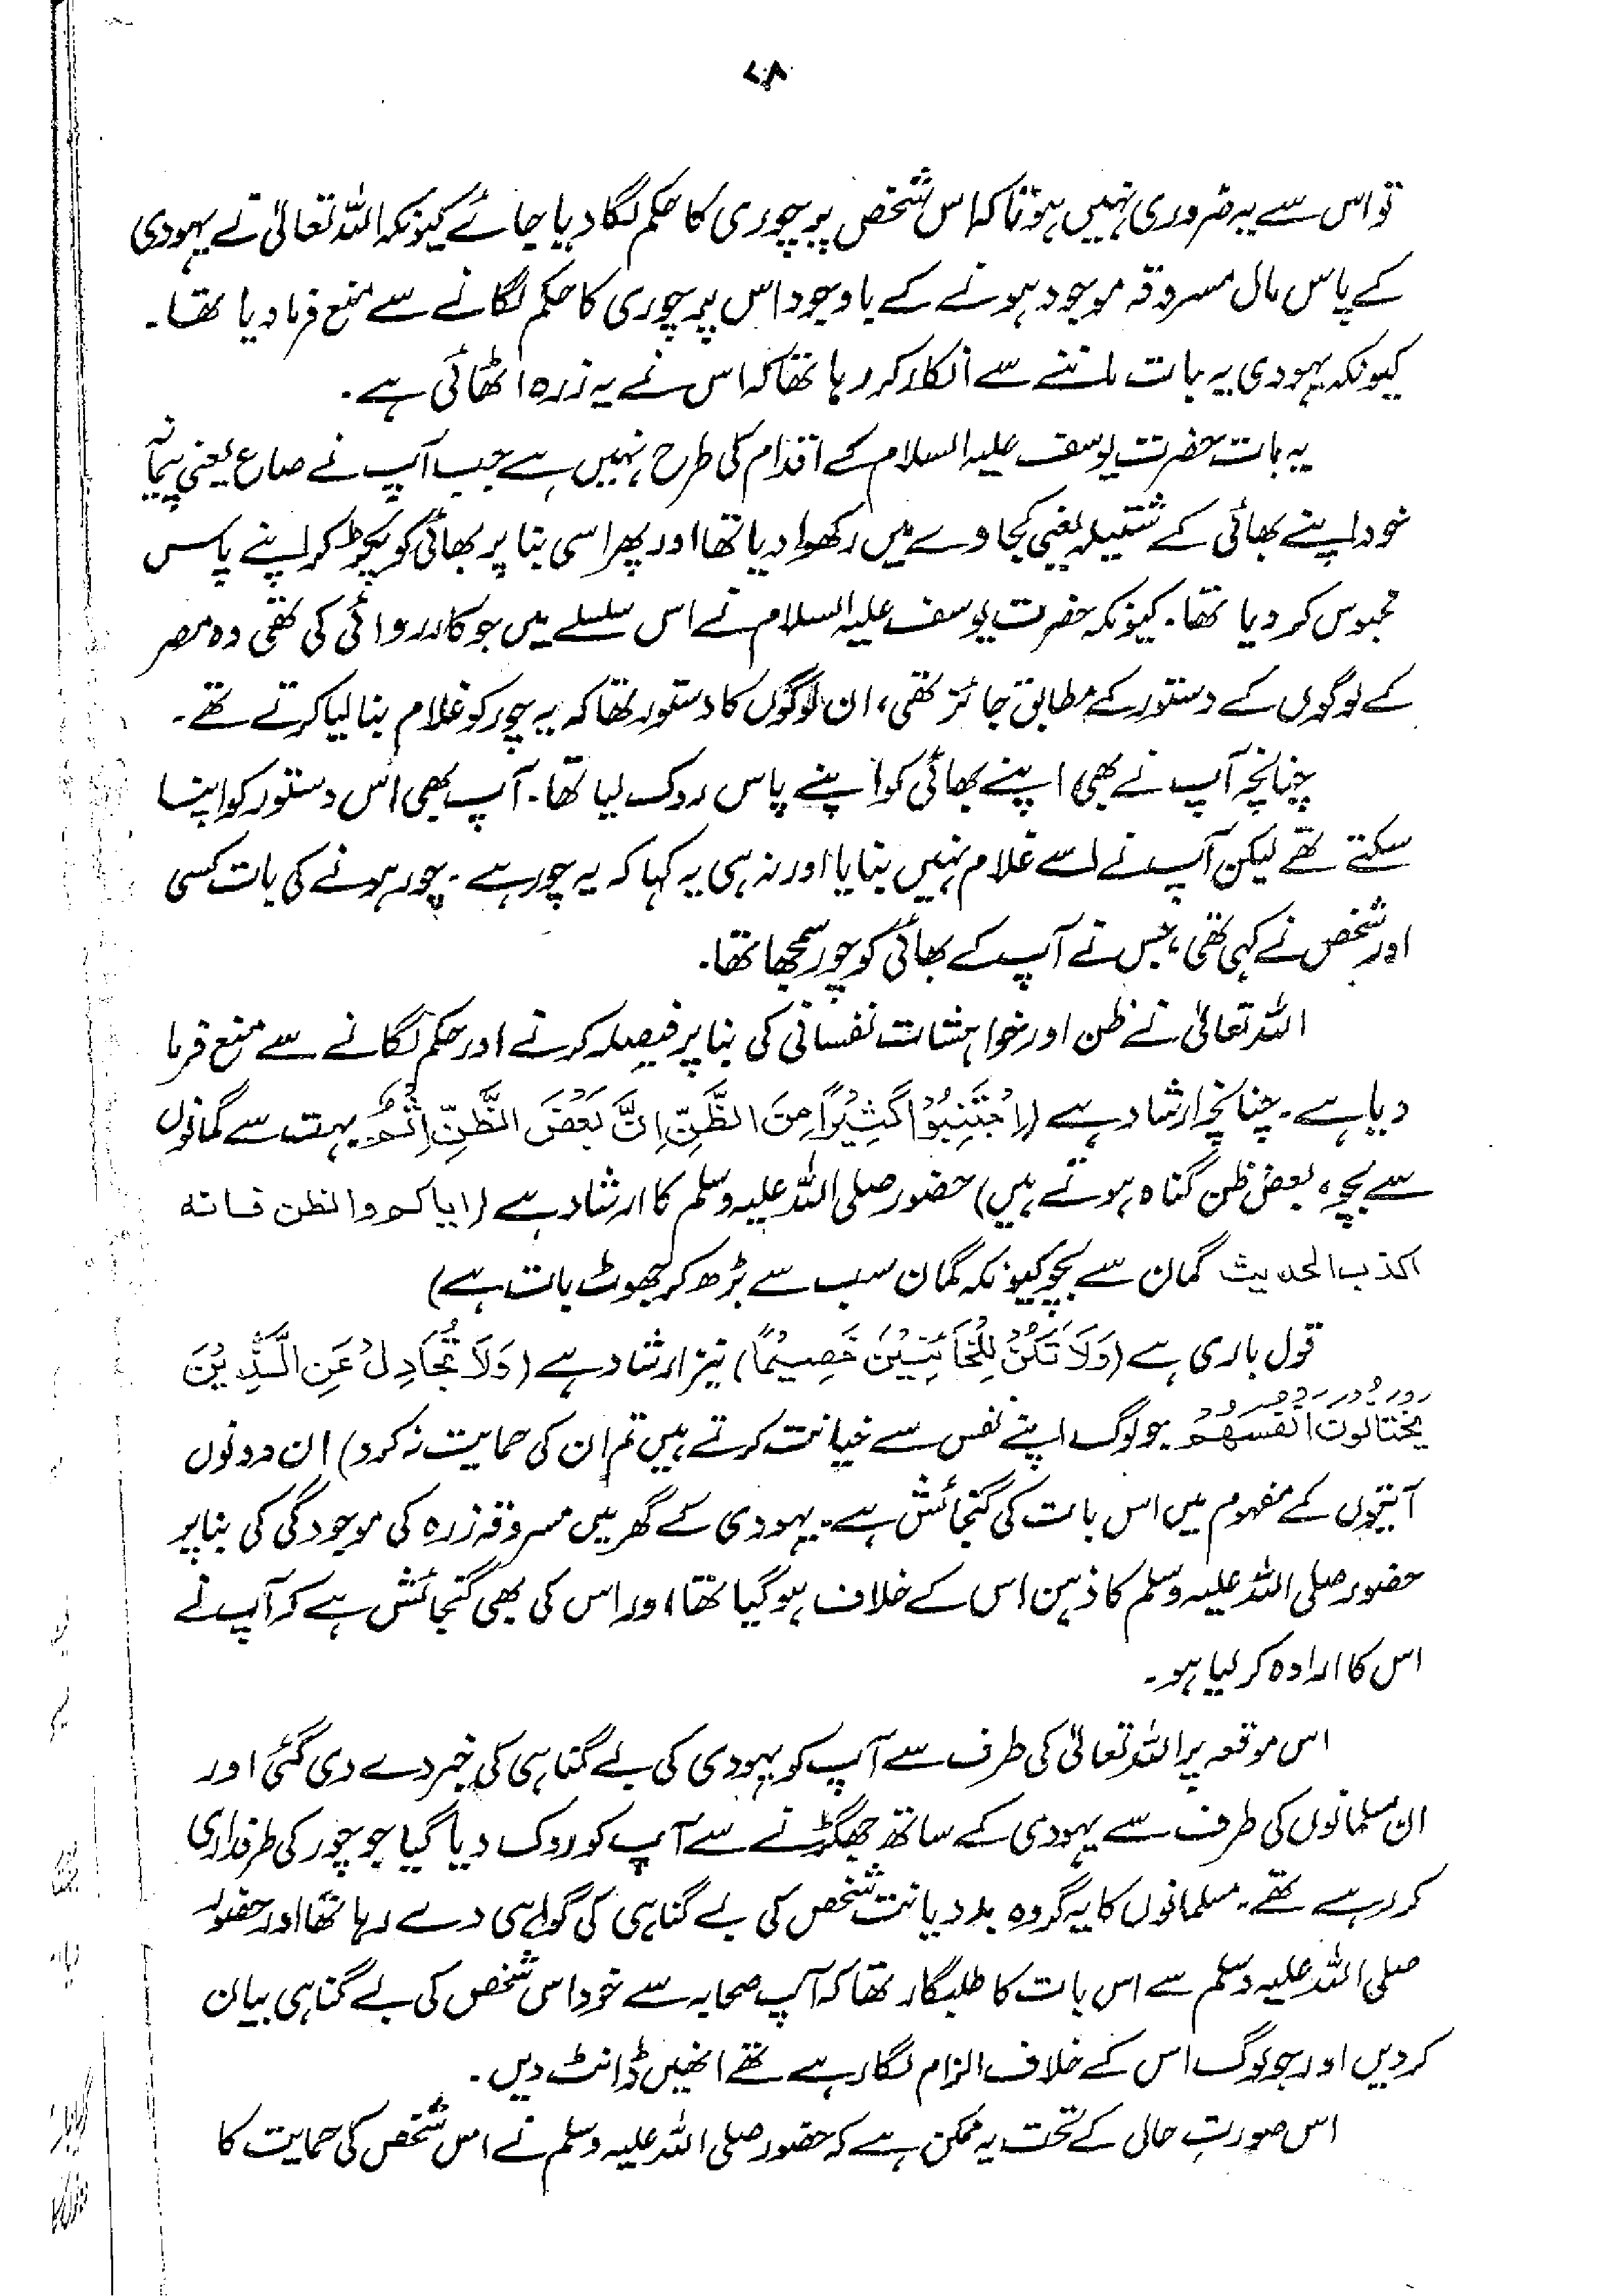 ۷۸
تو اس سے یہ ضروری نہیں ہوتا کہ اس شخص پر چوری کا حکم لگا دیا جائے کیونکہ اللہ تعالیٰ نے یہودی
کے پاس مال مسروقہ موجود ہونے کے باوجود اس پر چوری کا حکم لگانے سے منع فرما دیا تھا۔
کیونکہ یہودی یہ بات ماننے سے انکار کر رہا تھا کہ اس نے یہ زرہ اٹھائی ہے۔
یہ بات حضرت یوسف علیہ السلام کے اقدام کی طرح نہیں ہے جب آپ نے صاع یعنی پیمانہ
خود اپنے بھائی کے شتیلہ یعنی کجاوے میں رکھوا دیا تھا اور پھر اسی بنا پر بھائی کو پکڑ کر اپنے پاس
محبوس کر دیا تھا۔ کیونکہ حضرت یوسف علیہ السلام نے اس سلسلے میں جو کارروائی کی تھی وہ مصر
کے لوگوں کے دستور کے مطابق جائز تھی، ان لوگوں کا دستور تھا کہ یہ چور کو غلام بنا لیا کرتے تھے۔
چنانچہ آپ نے بھی اپنے بھائی کو اپنے پاس روک لیا تھا۔ آپ بھی اس دستور کو اپنا
سکتے تھے لیکن آپ نے اسے غلام نہیں بنایا اور نہ ہی یہ کہا کہ یہ چور ہے۔ چور ہونے کی بات کسی
اور شخص نے کہی تھی، جس نے آپ کے بھائی کو چور سمجھا تھا۔
اللہ تعالیٰ نے ظن اور خواہشات نفسانی کی بنا پر فیصلہ کرنے اور حکم لگانے سے منع فرما
دیا ہے۔ چنانچہ ارشاد ہے (اِجْتَنِبُوْا كَثِيْرًا مِنَ الظَّنِّ اِنَّ بَعْضَ الظَّنِّ اِثْمٌ۔ بہت سے گمانوں
سے بچو، بعض ظن گناہ ہوتے ہیں) حضور صلی اللہ علیہ وسلم کا ارشاد ہے (ایاکم والظن فانه
اکذب الحدیث گمان سے بچو کیونکہ گمان سب سے بڑھ کر جھوٹ بات ہے)
قول باری ہے (وَلَا تَكُنْ لِلْخَائِنِيْنَ خَصِيْمًا) نیز ارشاد ہے (وَلَا تُجَادِلْ عَنِ الَّذِيْنَ
يَخْتَانُوْنَ اَنْفُسَهُمْ جو لوگ اپنے نفس سے خیانت کرتے ہیں تم ان کی حمایت نہ کرو) ان دونوں
آیتوں کے مفہوم میں اس بات کی گنجائش ہے۔ یہودی کے گھر میں مسروقہ زرہ کی موجودگی کی بنا پر
حضور صلی اللہ علیہ وسلم کا ذہن اس کے خلاف ہو گیا تھا، اور اس کی بھی گنجائش ہے کہ آپ نے
اس کا ارادہ کر لیا ہو۔
اس موقعہ پر اللہ تعالیٰ کی طرف سے آپ کو یہودی کی بے گناہی کی خبر دے دی گئی اور
ان مسلمانوں کی طرف سے یہودی کے ساتھ جھگڑنے سے آپ کو روک دیا گیا جو چور کی طرفداری
کر رہے تھے۔ مسلمانوں کا یہ گروہ بد دیانت شخص کی بے گناہی کی گواہی دے رہا تھا اور حضور
صلی اللہ علیہ وسلم سے اس بات کا طلبگار تھا کہ آپ صحابہ سے خود اس شخص کی بے گناہی بیان
کر دیں اور جو لوگ اس کے خلاف الزام لگا رہے تھے انھیں ڈانٹ دیں۔
اس صورتِ حال کے تحت یہ ممکن ہے کہ حضور صلی اللہ علیہ وسلم نے اس شخص کی حمایت کا